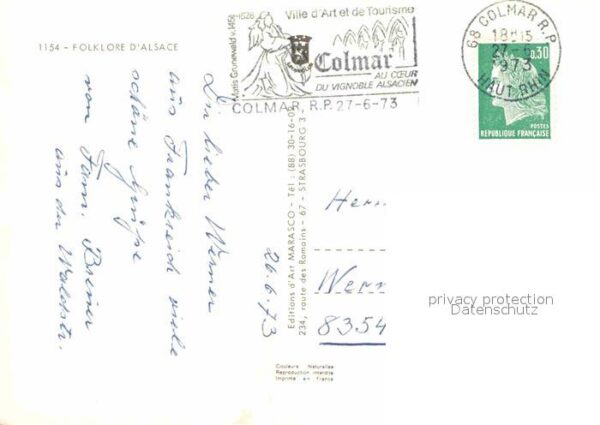 1154 - FOLKLORE D'ALSACE
Mathis Grunewald v.1455 1528
Ville d'Art et de Tourisme
Colmar
AU CŒUR
DU VIGNOBLE ALSACIEN
COLMAR, R.P. 27-6-73
68 COLMAR R.P.
18H15
27-6
1973
HAUT-RHIN
0,30
POSTES
REPUBLIQUE FRANÇAISE
Du lieber Werner
aus Frankreich viele
schöne Grüße
von Fam.
aus der Waldstr.
26.6.73
Editions d'Art MARASCO - Tél : (88) 30-16-0
234, route des Romains - 67 - STRASBOURG 3
Herr
Wern
8354
privacy protection
Datenschutz
Couleurs Naturelles
Reproduction interdite
Imprimé en France